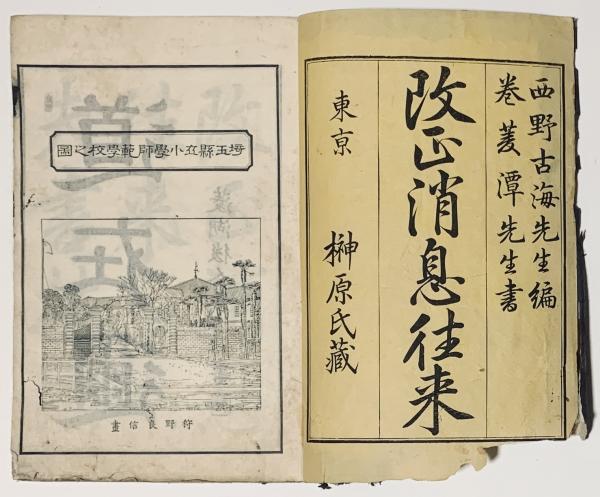 西野古海先生編
巻菱潭先生書
改正消息往来
東亰　榊原氏藏
埼玉縣立小學師範學校之圖
狩野良信畫